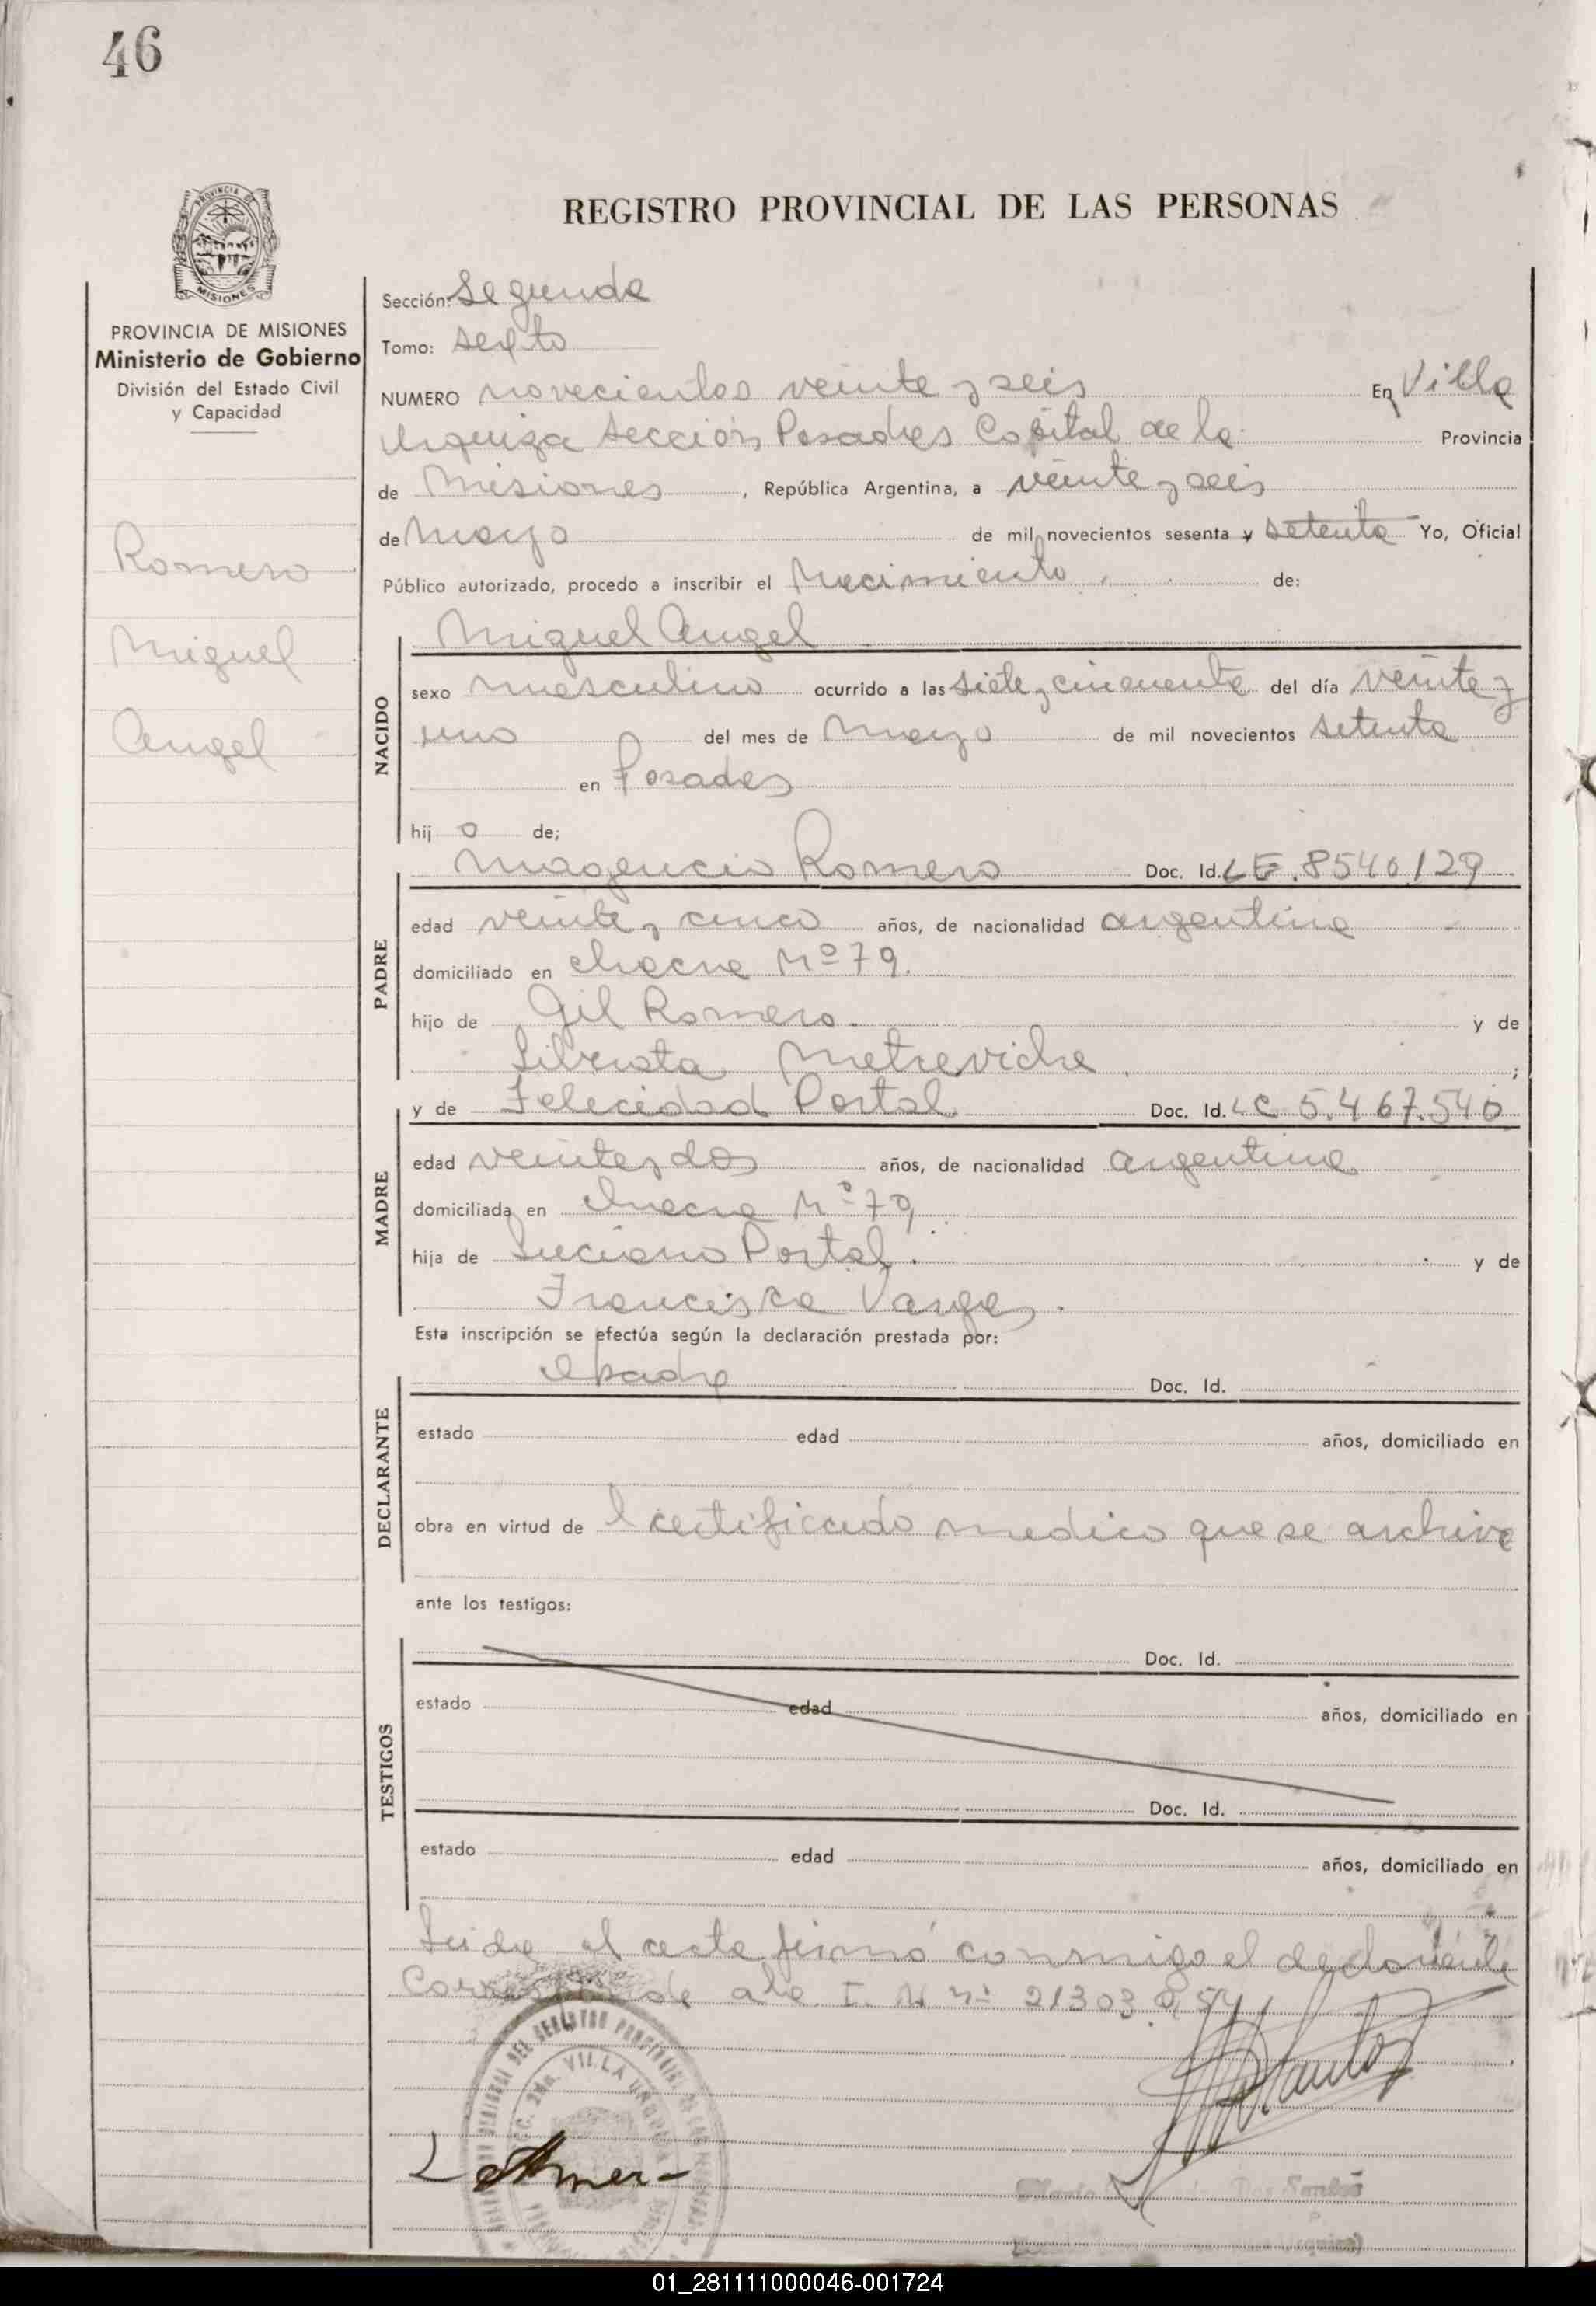 46
REGISTRO PROVINCIAL DE LAS PERSONAS
PROVINCIA DE MISIONES
Ministerio de Gobierno
División del Estado Civil
y Capacidad
Romero
Miguel
Angel
Sección: Segunda
Tomo: Sexto
NUMERO novecientos veinte y seis En Villa
Urquiza Sección Posadas Capital de la Provincia
de Misiones, República Argentina, a veinte y seis
de Mayo de mil novecientos sesenta y setenta Yo, Oficial
Público autorizado, procedo a inscribir el Nacimiento de:
NACIDO
Miguel Angel
sexo masculino ocurrido a las siete y cincuenta del día veinte y
uno del mes de Mayo de mil novecientos setenta
en Posadas
hij o de;
PADRE
Magencio Romero Doc. Id. LE. 8540129
edad veinte y cinco años, de nacionalidad argentina
domiciliado en chacra Nº 79.
hijo de Gil Romero. y de
Liberata Metreviche ;
MADRE
y de Felecidad Portal Doc. Id. LC 5.467.540
edad veinte y dos años, de nacionalidad argentina
domiciliada en chacra Nº 79
hija de Luciano Portal. y de
Francisca Vargas.
Esta inscripción se efectúa según la declaración prestada por:
DECLARANTE
el padre Doc. Id.
estado edad años, domiciliado en
obra en virtud de l certificado medico que se archiva
ante los testigos:
TESTIGOS
Doc. Id.
estado edad años, domiciliado en
Doc. Id.
estado edad años, domiciliado en
Leida el acta firmó conmigo el declarante
Corresponde a la I. N nº 21303.854
VILLA URQUIZA
Dos Santos
01_281111000046-001724